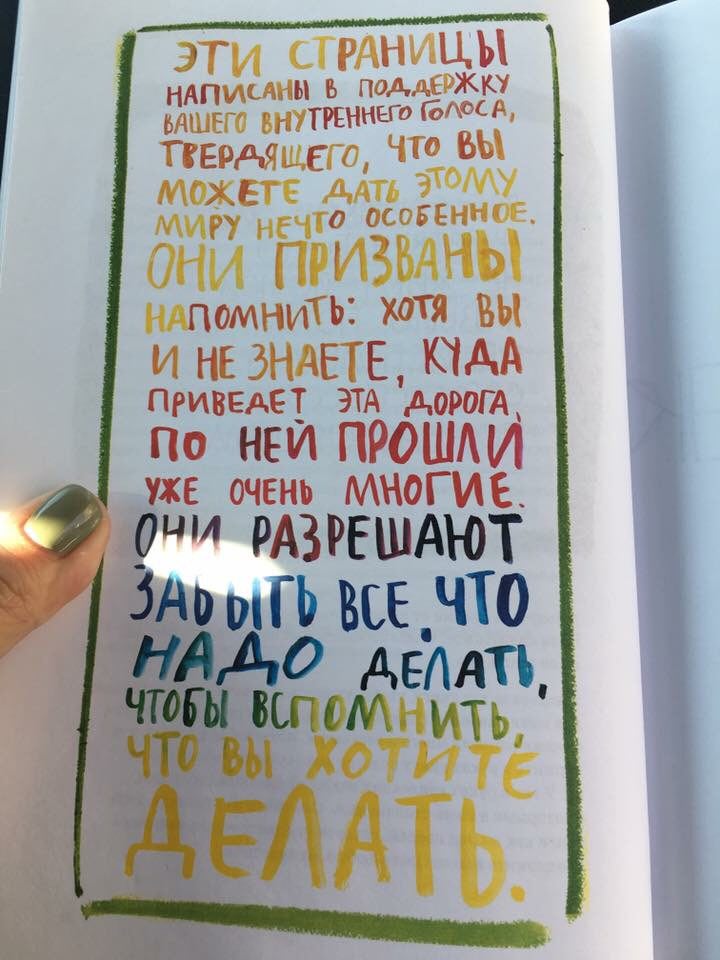 ЭТИ СТРАНИЦЫ
НАПИСАНЫ В ПОДДЕРЖКУ
ВАШЕГО ВНУТРЕННЕГО ГОЛОСА,
ТВЕРДЯЩЕГО, ЧТО ВЫ
МОЖЕТЕ ДАТЬ ЭТОМУ
МИРУ НЕЧТО ОСОБЕННОЕ.
ОНИ ПРИЗВАНЫ
НАПОМНИТЬ: ХОТЯ ВЫ
И НЕ ЗНАЕТЕ, КУДА
ПРИВЕДЕТ ЭТА ДОРОГА,
ПО НЕЙ ПРОШЛИ
УЖЕ ОЧЕНЬ МНОГИЕ.
ОНИ РАЗРЕШАЮТ
ЗАБЫТЬ ВСЕ, ЧТО
НАДО ДЕЛАТЬ,
ЧТОБЫ ВСПОМНИТЬ,
ЧТО ВЫ ХОТИТЕ
ДЕЛАТЬ.